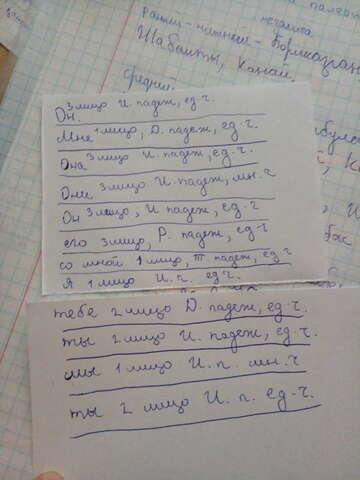 неглита
Ранний-нижний-Борıказган
Шабакты, Канай
средний
Он. 3 лицо И падеж, ед.ч.
Мне 1 лицо, Д. падеж, ед.ч.
Она 3 лицо И. падеж, ед.ч.
Они 3 лицо И. падеж, мн.ч
Он 3 лицо, И падеж, ед.ч
его 3 лицо, Р. падеж, ед.ч
со мной 1 лицо, Т падеж, ед.ч
Я 1 лицо И.п. ед.ч.
тебе 2 лицо Д. падеж, ед.ч.
ты 2 лицо И. падеж, ед.ч.
мы 1 лицо И.п. мн.ч
ты 2 лицо И.п. ед.ч.